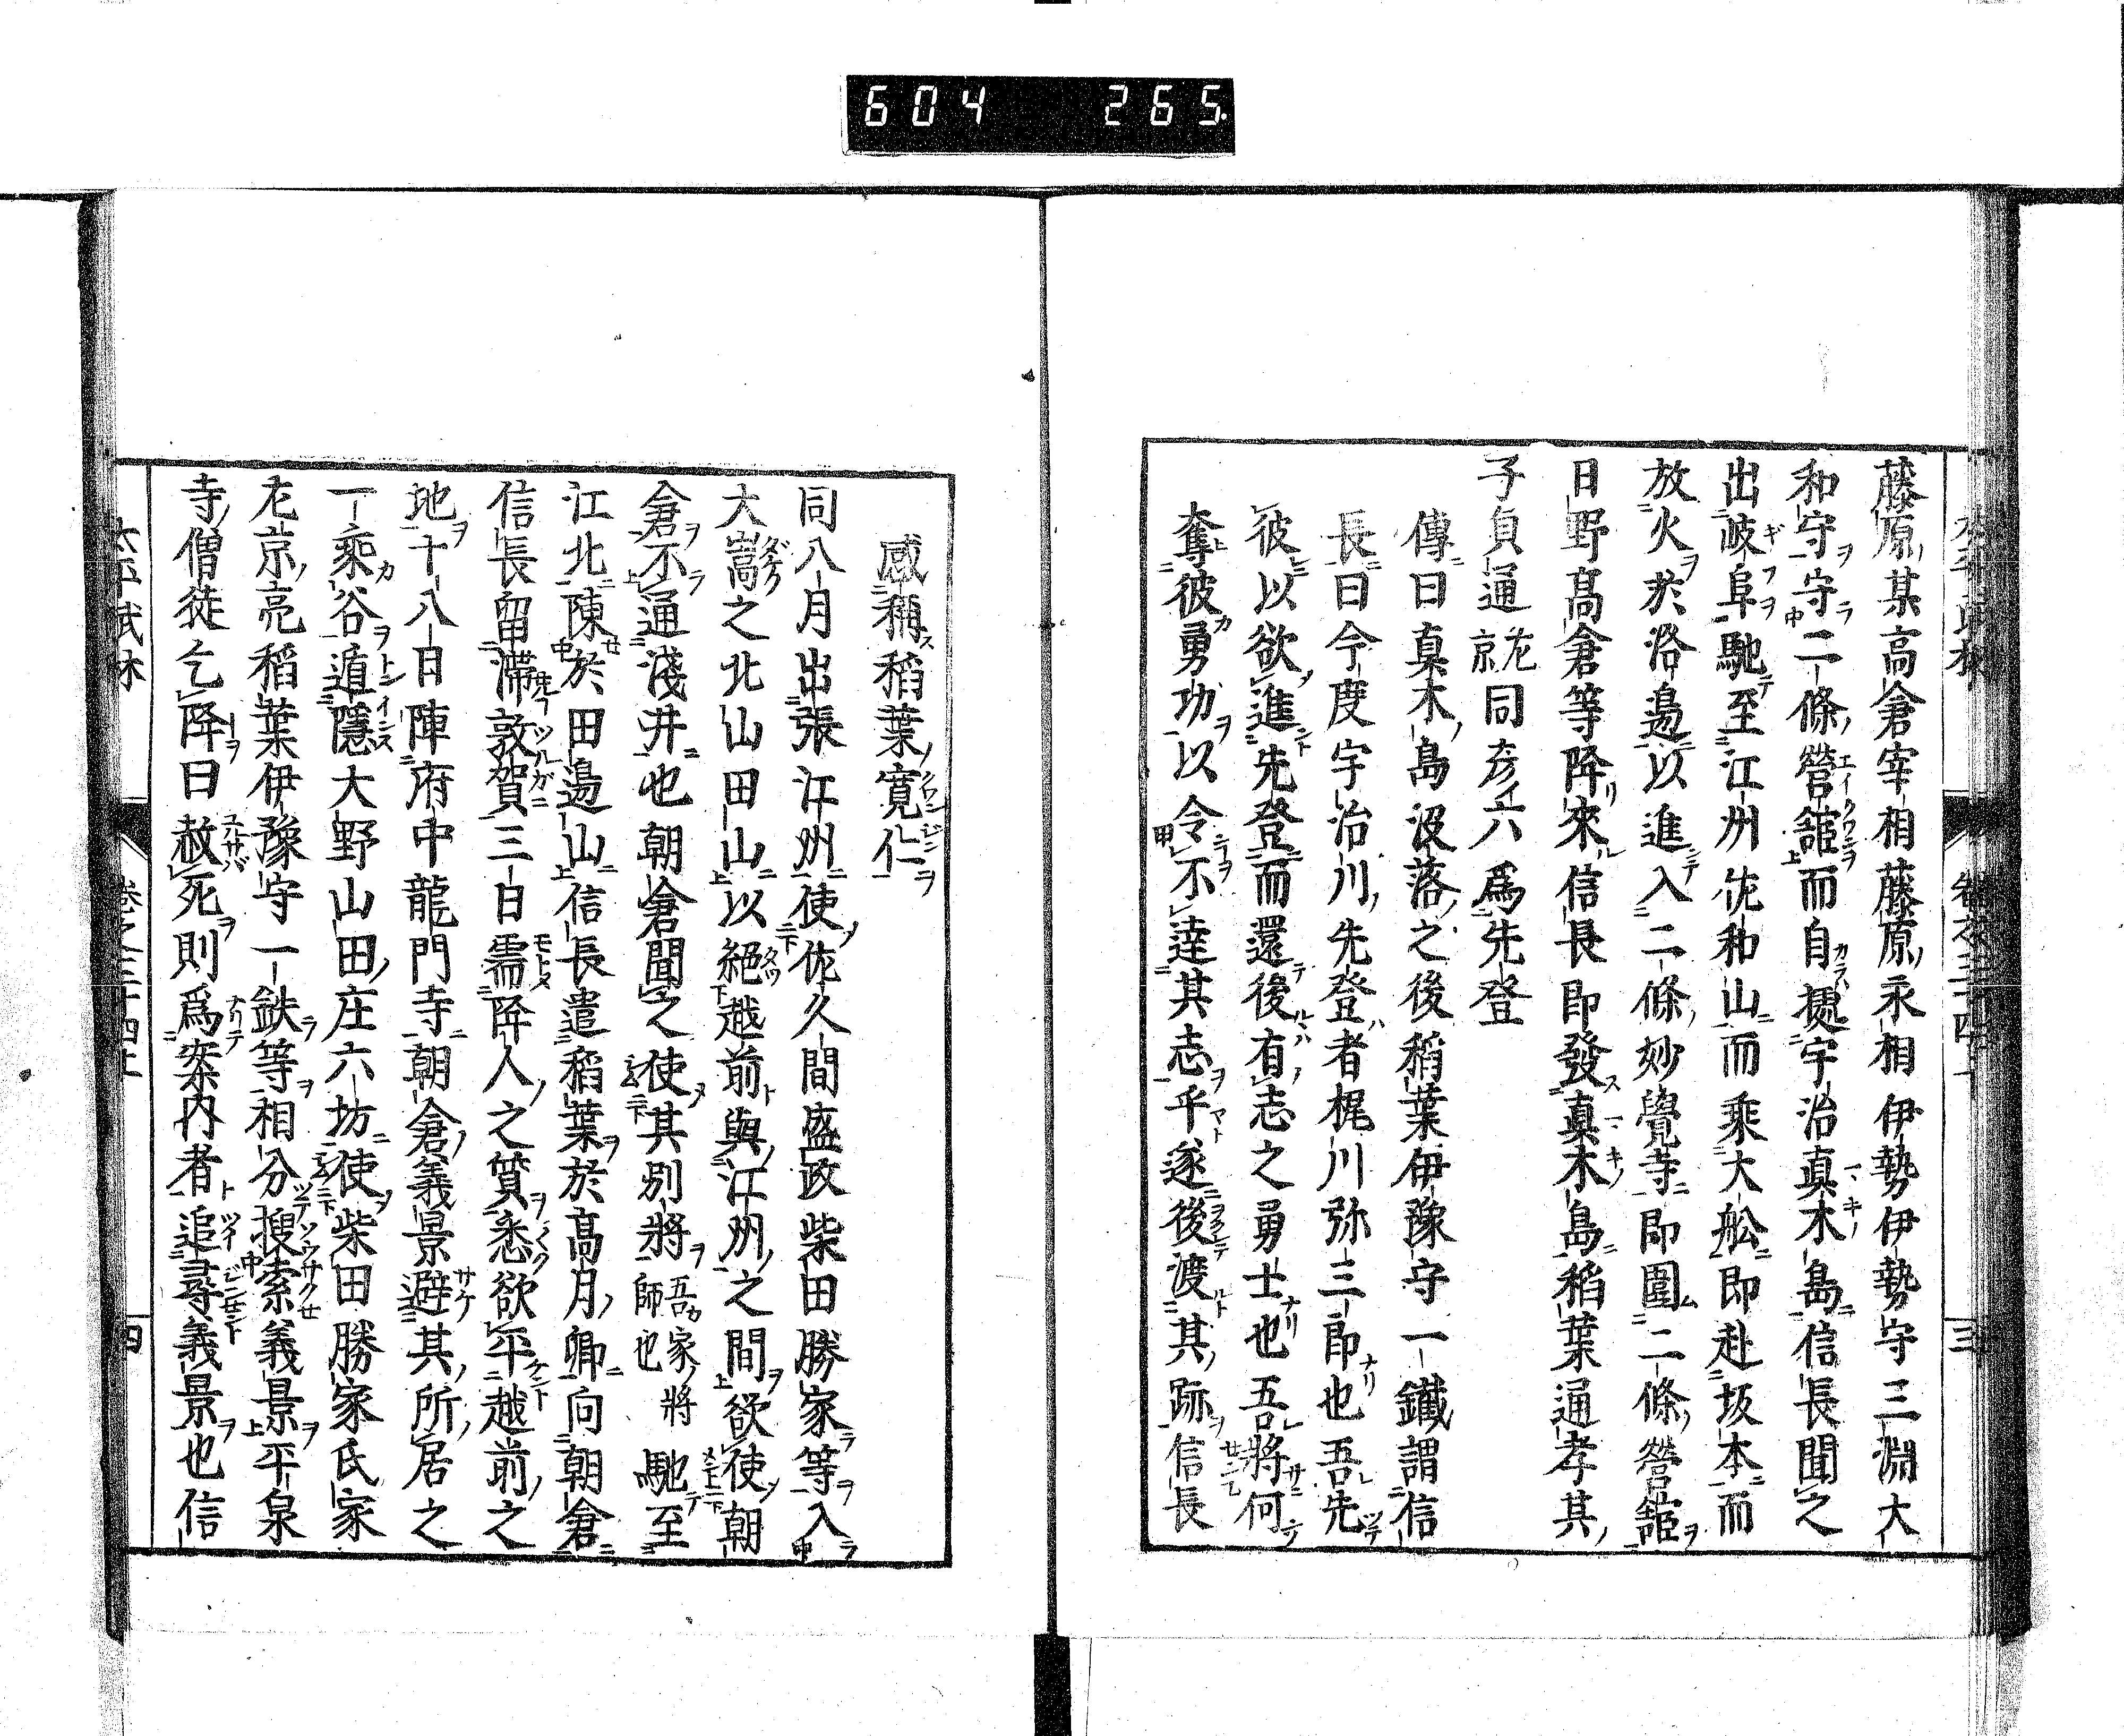 604 265
藤原某高倉宰相藤原永相伊勢伊勢守三淵大
和守守二條營舘而自據宇治真木島信長聞之
出岐阜馳至江州佐和山而乘大舩即赴坂本而
放火於洛邊以進入二條妙覺寺即圍二條營舘
日野高倉等降來信長即發真木島稻葉通孝其
子貞通左京同彦六爲先登
傳曰真木島沒落之後稻葉伊豫守一鐵謂信
長曰今度宇治川先登者梶川弥三郎也吾先
彼以欲進先登而還後有志之勇士也吾將何
奪彼勇功以令不達其志乎遂後渡其跡信長
感稱稻葉寬仁
同八月出張江州使佐久間盛政柴田勝家等入
大嵩之北山田山以絕越前與江州之間欲使朝
倉不通淺井也朝倉聞之使其別將吾家將師也馳至
江北陳於田邉山信長遣稻葉於高月鄉向朝倉
信長留滯敦賀三日需降人之質悉欲平越前之
地十八日陣府中龍門寺朝倉義景避其所居之
一乘谷遁隱大野山田庄六坊使柴田勝家氏家
左京亮稻葉伊豫守一鉄等相分搜索義景平泉
寺僧徒乞降曰赦死則爲案内者追尋義景也信
卷之三十四上
四